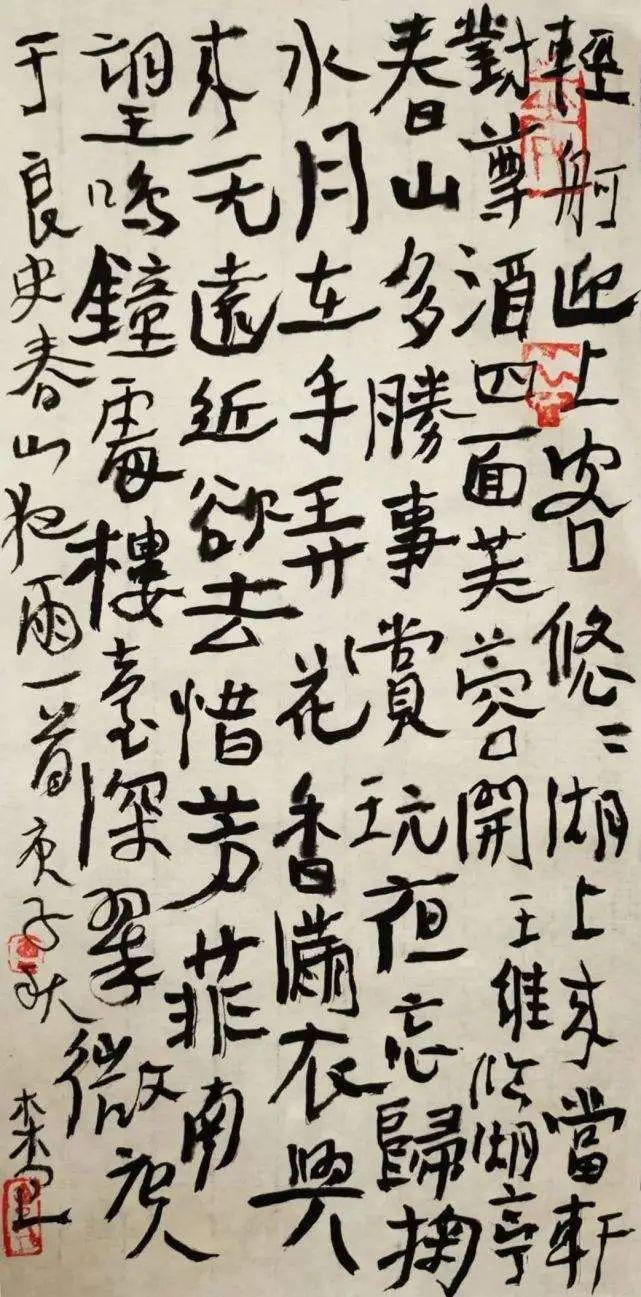 輕舸迎上客悠〻湖上来當軒
對尊酒四面芙蓉開王維臨湖亭
春山多勝事賞玩夜忘歸掬
水月在手弄花香滿衣興
来无遠近欲去惜芳菲南
望鳴鐘處樓臺深翠微唐人
于良史春山夜雨一首庚子秋